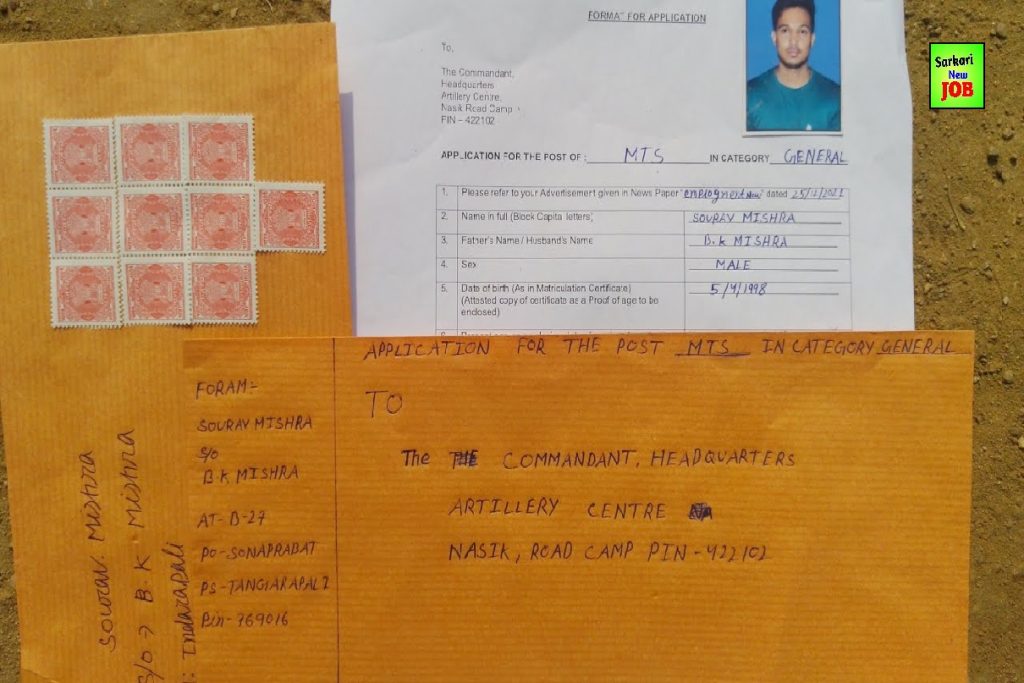 FORMAT FOR APPLICATION
To,
The Commandant,
Headquarters
Artillery Centre,
Nasik Road Camp
PIN – 422102
APPLICATION FOR THE POST OF : MTS IN CATEGORY GENERAL
1. Please refer to your Advertisement given in News Paper dated 25/12/2021
2. Name in full (Block Capital letters) SOURAV MISHRA
3. Father's Name / Husband's Name B.K MISHRA
4. Sex MALE
5. Date of birth (As in Matriculation Certificate) 5/4/1998
(Attested copy of certificate as a Proof of age to be
enclosed)
Sarkari
New
JOB
APPLICATION FOR THE POST MTS IN CATEGORY GENERAL
FORAM:-
SOURAV MISHRA
S/O
B.K MISHRA
AT-B-27
PO-SONAPRABAT
PS-TANGIARAPALI
Pin-769016
TO
The COMMANDANT, HEADQUARTERS
ARTILLERY CENTRE
NASIK, ROAD CAMP PIN-422102
Sourav Mishra
S/O → B.K - Mishra
: Indarapali